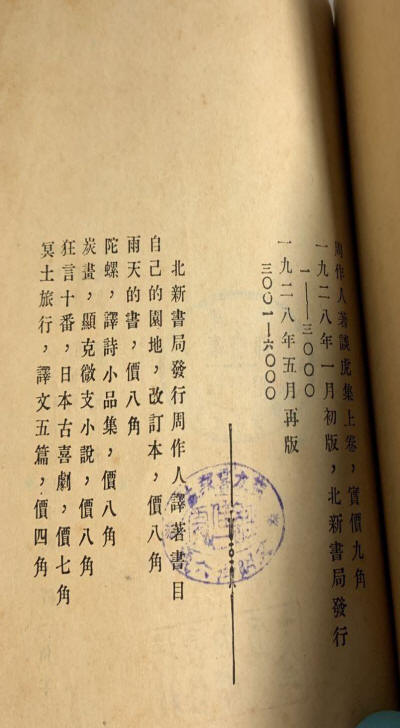 周作人著談虎集上卷，實價九角
一九二八年一月初版，北新書局發行
一——三〇〇〇
一九二八年五月再版
三〇〇一—六〇〇〇
北新書局發行周作人譯著書目
自己的園地，改訂本，價八角
雨天的書，價八角
陀螺，譯詩小品集，價八角
炭畫，顯克微支小說，價八角
狂言十番，日本古喜劇，價七角
冥土旅行，譯文五篇，價四角